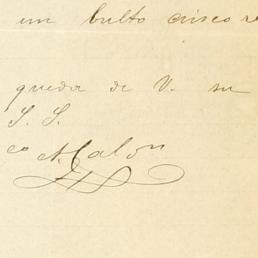 un bulto cinco re
queda de V. su
S. S.
A. Calon